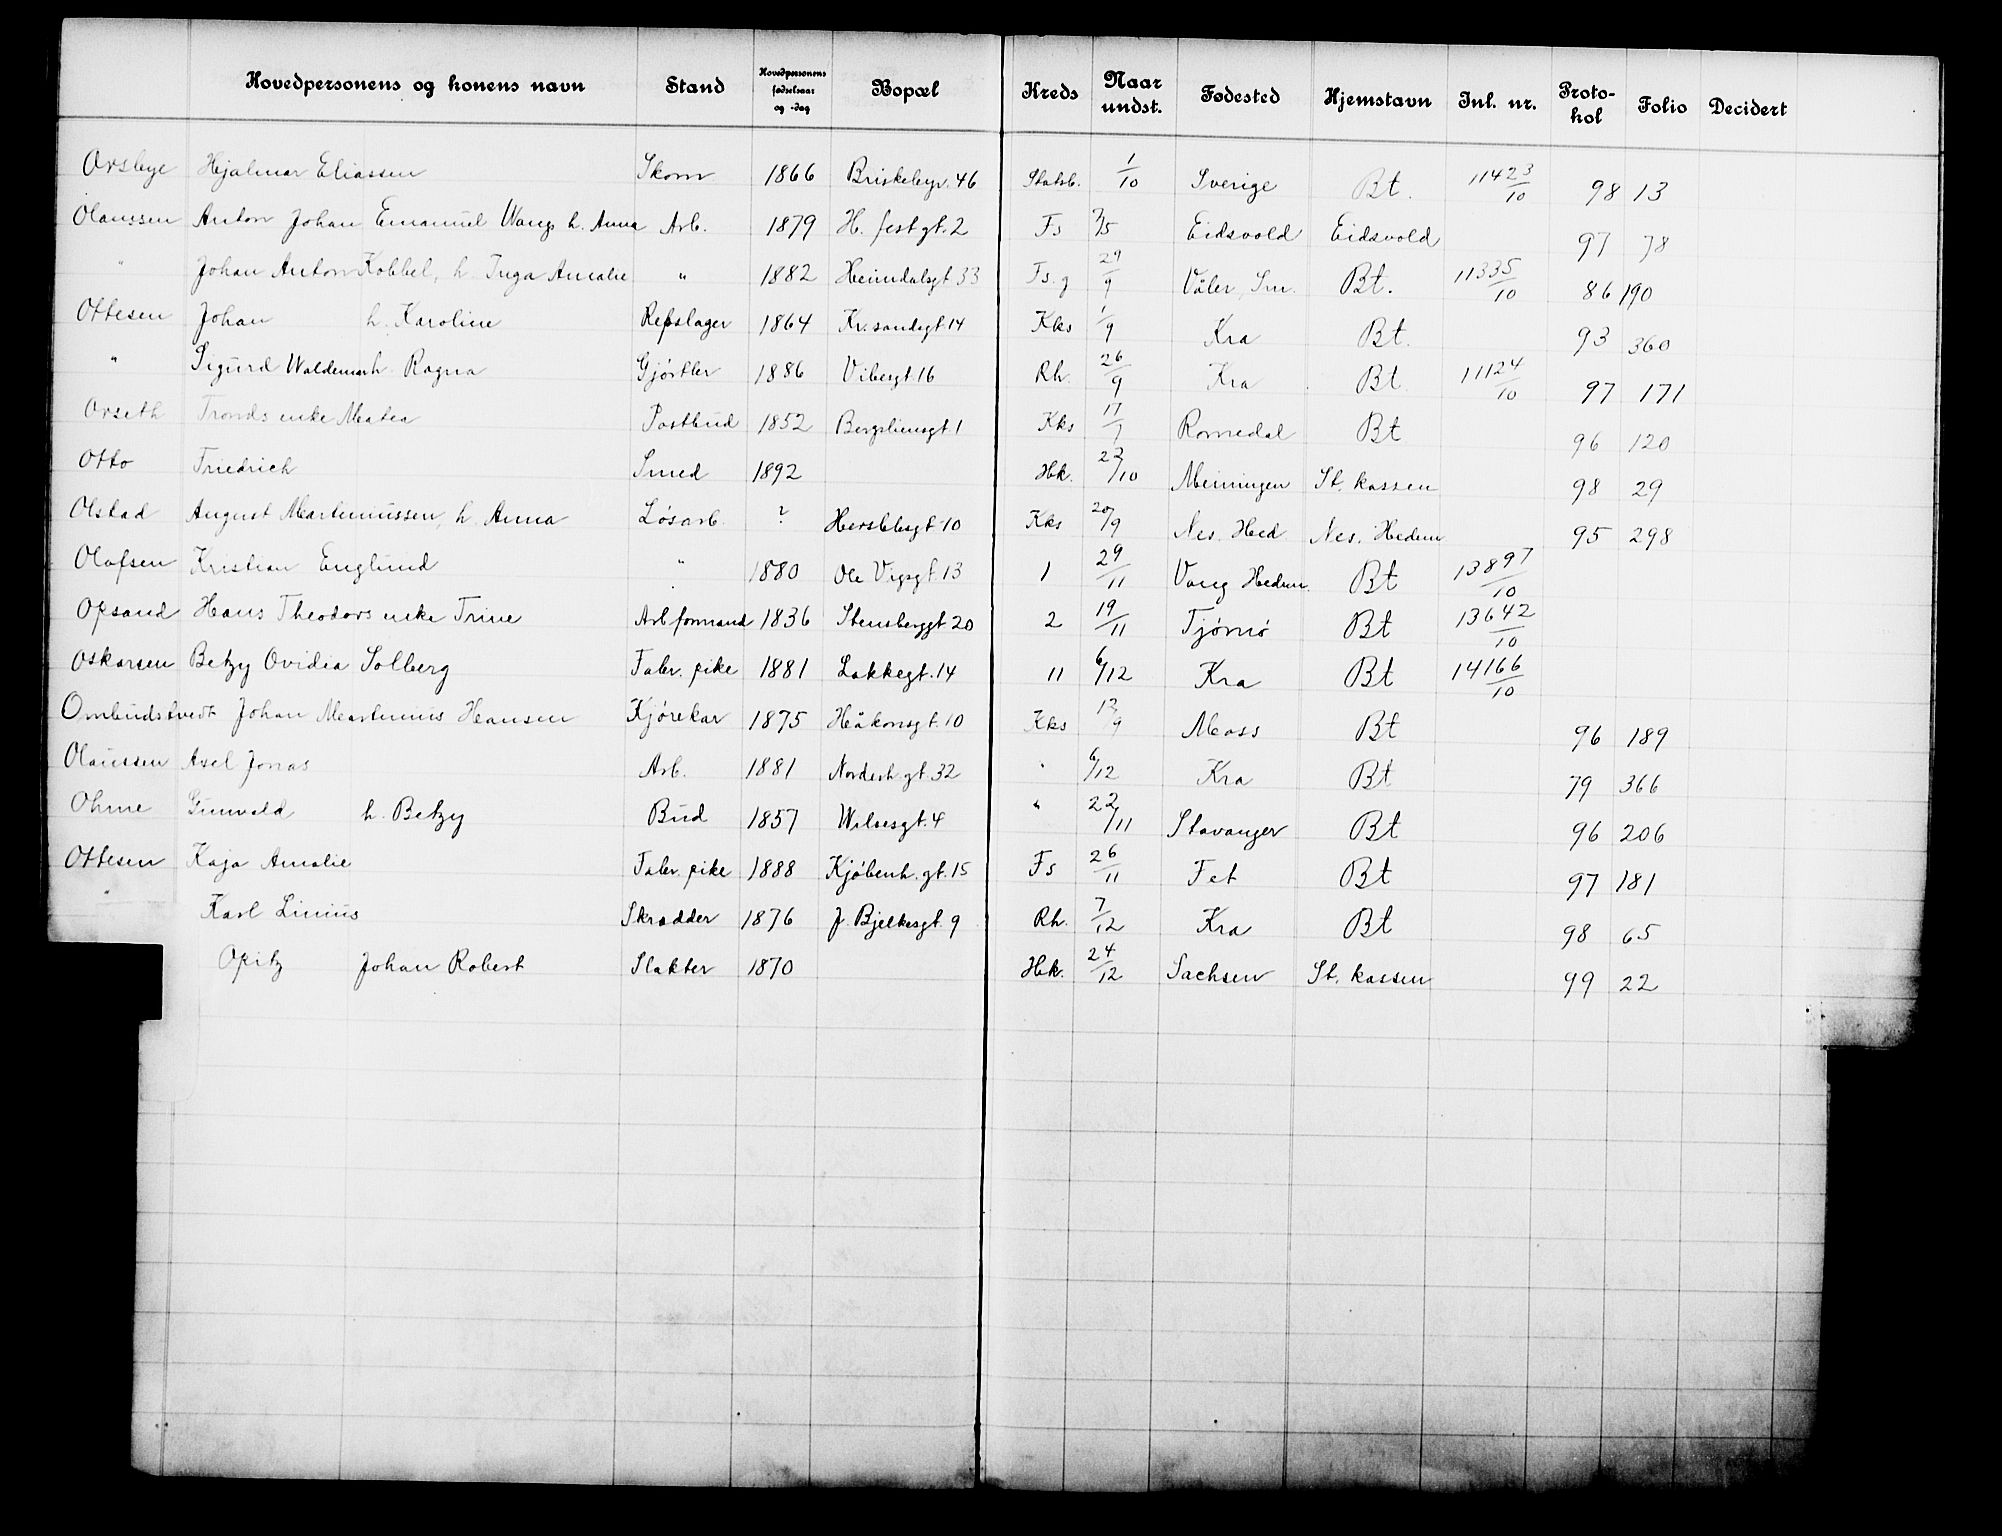 Hovedpersonens og konens navn Stand Hovedpersonens fødselsaar og -dag Bopæl Kreds Naar undst. Fødested Hjemstavn Inl. nr. Protokol Folio Decidert
Hjalmar Eliassen Skom 1866 Briskebyv. 46 Statsb. 1/10 Sverige Bt. 11423/10 98 13
Olaussen Anton Johan Emanuel Wang h. Anna Arb. 1879 H. fest gt. 2 Fs 7/5 Eidsvold Eidsvold 97 78
" Johan Anton Kobbel, h. Inga Amalie " 1882 Heimdalsgt 33 Fs. g 29/9 Våler, Sm. Bt. 11335/10 86 190
Ottesen Johan h. Karoline Repslager 1864 Kr. sandsgt. 14 Kks 1/9 Kra Bt. 93 360
" Sigurd Waldemar h. Ragna Gjørtler 1886 Vibesgt. 16 Rh. 26/9 Kra Bt 11124/10 97 171
Orseth Tronds enke Matea Postbud 1852 Bergsliensgt 1 Kks 17/7 Romedal Bt 96 120
Otto Friedrich Smed 1892 Hk. 22/10 Meiningen St. kassen 98 29
Olstad August Martiniussen, h. Anna Løsarb. ? Herslebsgt. 10 Kks 20/9 Nes. Hed Nes. Hedm 95 298
Olafsen Kristian Englund " 1880 Ole Vigsgt. 13 1 29/11 Vang Hedm. Bt 13897/10
Opsand Hans Theodors enke Trine Arb formand 1836 Stensberggt 20 2 19/11 Tjømø Bt 13642/10
Oskarsen Betzy Ovidia Solberg Fabr. pike 1881 Lakkegt. 14 11 6/12 Kra Bt 14166/10
Ombudstvedt Johan Martinius Hansen Kjørekar 1875 Håkonsgt. 10 Kks 12/9 Moss Bt 96 189
Olaussen Axel Jonas Arb. 1881 Norderh. gt. 32 " 6/12 Kra Bt 79 366
Ohme Gunvald h. Betzy Bud 1857 Wilsesgt. 4 " 22/11 Stavanger Bt 96 206
Ottesen Kaja Amalie Fabr. pike 1888 Kjøbenh. gt. 15 Fs 26/11 Fet Bt 97 181
" Karl Linius Skrædder 1876 J. Bjelkesgt. 9 Rh. 7/12 Kra Bt 98 65
Opitz Johan Robert Slakter 1870 Hk. 24/12 Sachsen St. kassen 99 22